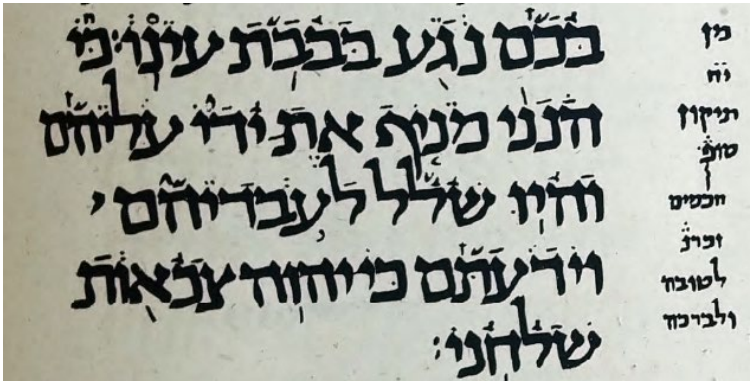 בכם נגע בבבת עינו: כי
הנני מניף את ידי עליהם
והיו שלל לעבדיהם
וידעתם כי יהוה צבאות
שלחני:
מן
יח
תיקון
סופ
חכמים
זכרנ
לטובה
ולברכה